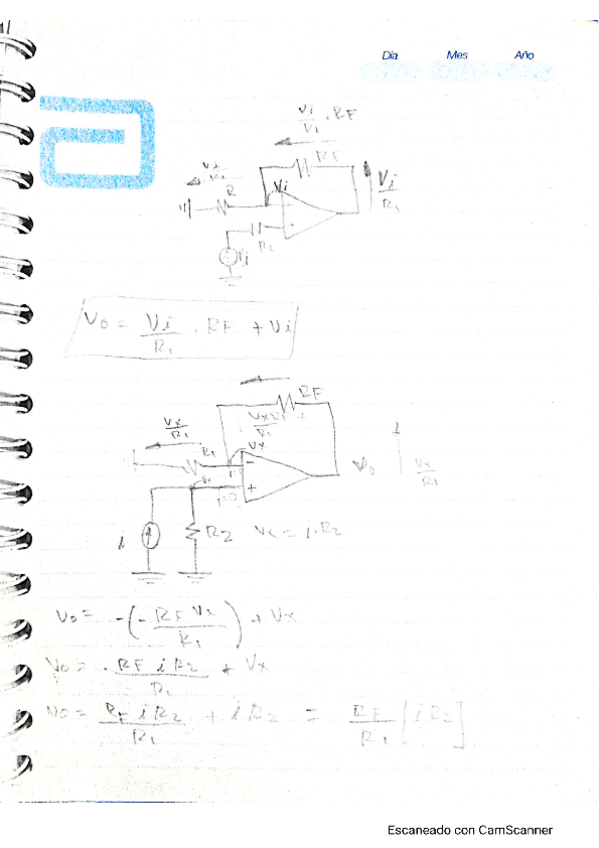 Día Mes Año
Vi/R1 . RF
RF
R
Vi
Vi/R1
R1
Vi
Vo = Vi/R1 . RF + Vi
RF
Vx/R1
R1
Vx
Vo
Vx/R1
i
R2 Vx = i.R2
Vo = -(- RF Vx/R1) + Vx
Vo = . RF i R2/R1 + Vx
Vo = RF i R2/R1 + i R2 = RF/R1 [i R2]
Escaneado con CamScanner